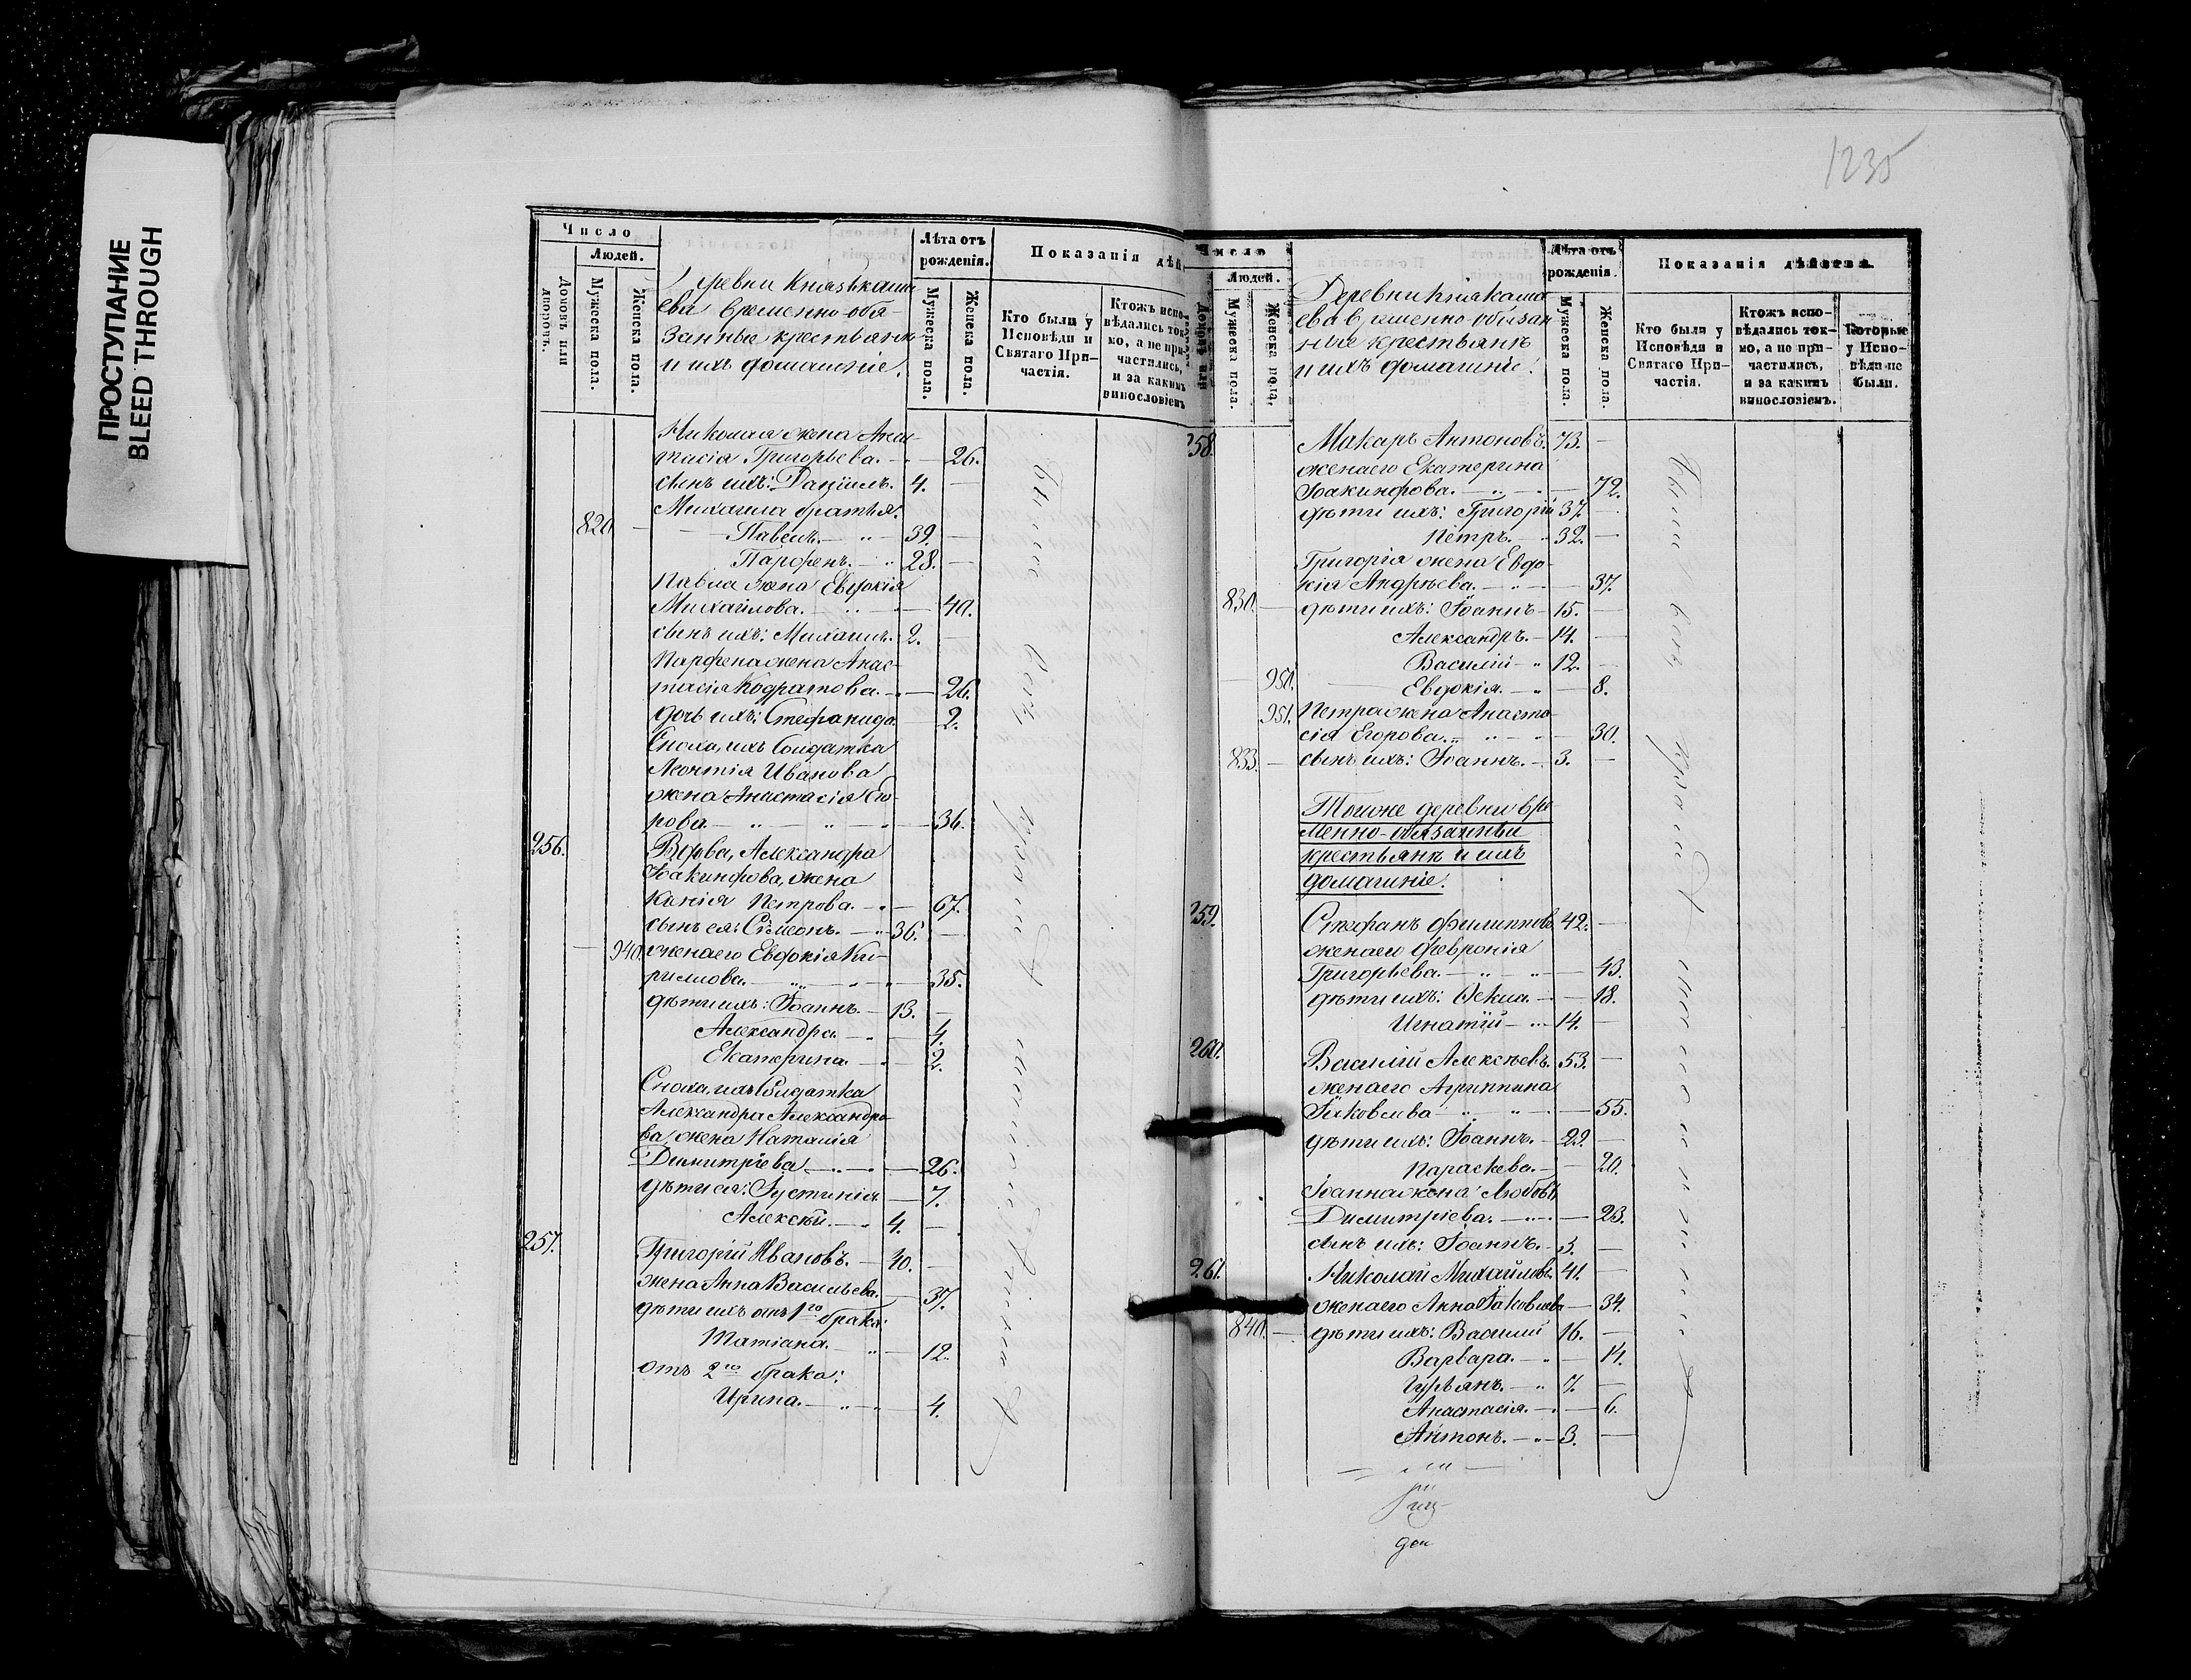 ПРОСТУПАНИЕ
BLEED THROUGH
1235
Число
Людей.
Домовъ или дворовъ.
Мужеска пола.
Женска пола.
Деревни Княжкаши-
ева временно-обя-
занные крестьяне
и ихъ домашніе.
Лѣта отъ рожденія.
Мужеска пола.
Женска пола.
Показанія дѣй
Кто были у Исповѣди и Святаго При-частія.
Ктожъ испо-вѣдались ток-мо, а не при-частились, и за какимъ винословіемъ
Николая жена Анас-
тасія Григорьева. 26.
сынъ ихъ: Даніилъ. 4.
Михаила братья:
820 Павелъ. 39.
Парфенъ. 28.
Павла жена Евдокія
Михайлова. 40.
сынъ ихъ: Михаилъ. 2.
Парфена жена Анас-
тасія Кодратова. 26.
дочь ихъ: Стефанида 2.
Сноха, ихъ Солдатка
Леонтія Иванова
жена Анастасія Его-
рова 36.
256. Вдова, Александра
Іоакинфова, жена
Ксенія Петрова. 67.
сынъ ея: Сѵмеонъ. 36.
940. жена его Евдокія Ки-
риллова. 35.
дѣти ихъ: Іоаннъ. 13.
Александра. 4.
Екатерина. 2.
Сноха, ихъ Солдатка
Александра Александро-
ва, жена Наталія
Димитріева 26.
дѣти ея: Іустинія 7.
Алексѣй. 4.
257. Григорій Ивановъ. 40.
жена Анна Васильева. 37.
дѣти ихъ отъ 1го брака:
Татіана. 12.
отъ 2го брака:
Ирина. 4.
Число
Людей.
Мужеска пола.
Женска пола.
Деревни Княжкаши
ева временно-обязан
ные крестьяне
и ихъ домашніе.
Лѣта отъ рожденія.
Мужеска пола.
Женска пола.
Показанія дѣйства.
Кто были у Исповѣди и Святаго При-частія.
Ктожъ испо-вѣдались ток-мо, а не при-частились, и за какимъ винословіемъ.
Которые у Испо-вѣди не были.
258. Макаръ Антоновъ. 73.
жена его Екатерина
Іоакинфова. 72.
дѣти ихъ: Григорій 37.
Петръ. 32.
Григорія жена Евдо-
кія Андреева. 37.
830. дѣти ихъ: Іоаннъ 15.
Александръ. 14.
Василій 12.
950. Евдокія. 8.
951. Петра жена Анаста-
сія Егорова. 30.
833. сынъ ихъ: Іоаннъ. 3.
Тойже деревни вре-
менно-обязанные
крестьяне и ихъ
домашніе.
259. Стефанъ Филипповъ 42.
жена его Февронія
Григорьева. 43.
дѣти ихъ: Ѳекла. 18.
Игнатій 14.
260. Василій Алексѣевъ. 53.
жена его Агриппина
Іаковлева 55.
дѣти ихъ: Іоаннъ. 22.
Параскева. 20.
Іоанна жена Любовь
Димитріева. 23.
сынъ ихъ: Іоаннъ. 3.
261. Николай Михайловъ. 41.
жена его Анна Іаковлева 34.
840. дѣти ихъ: Василій 16.
Варвара. 14.
Гурьянъ. 7.
Анастасія. 6.
Антонъ. 3.